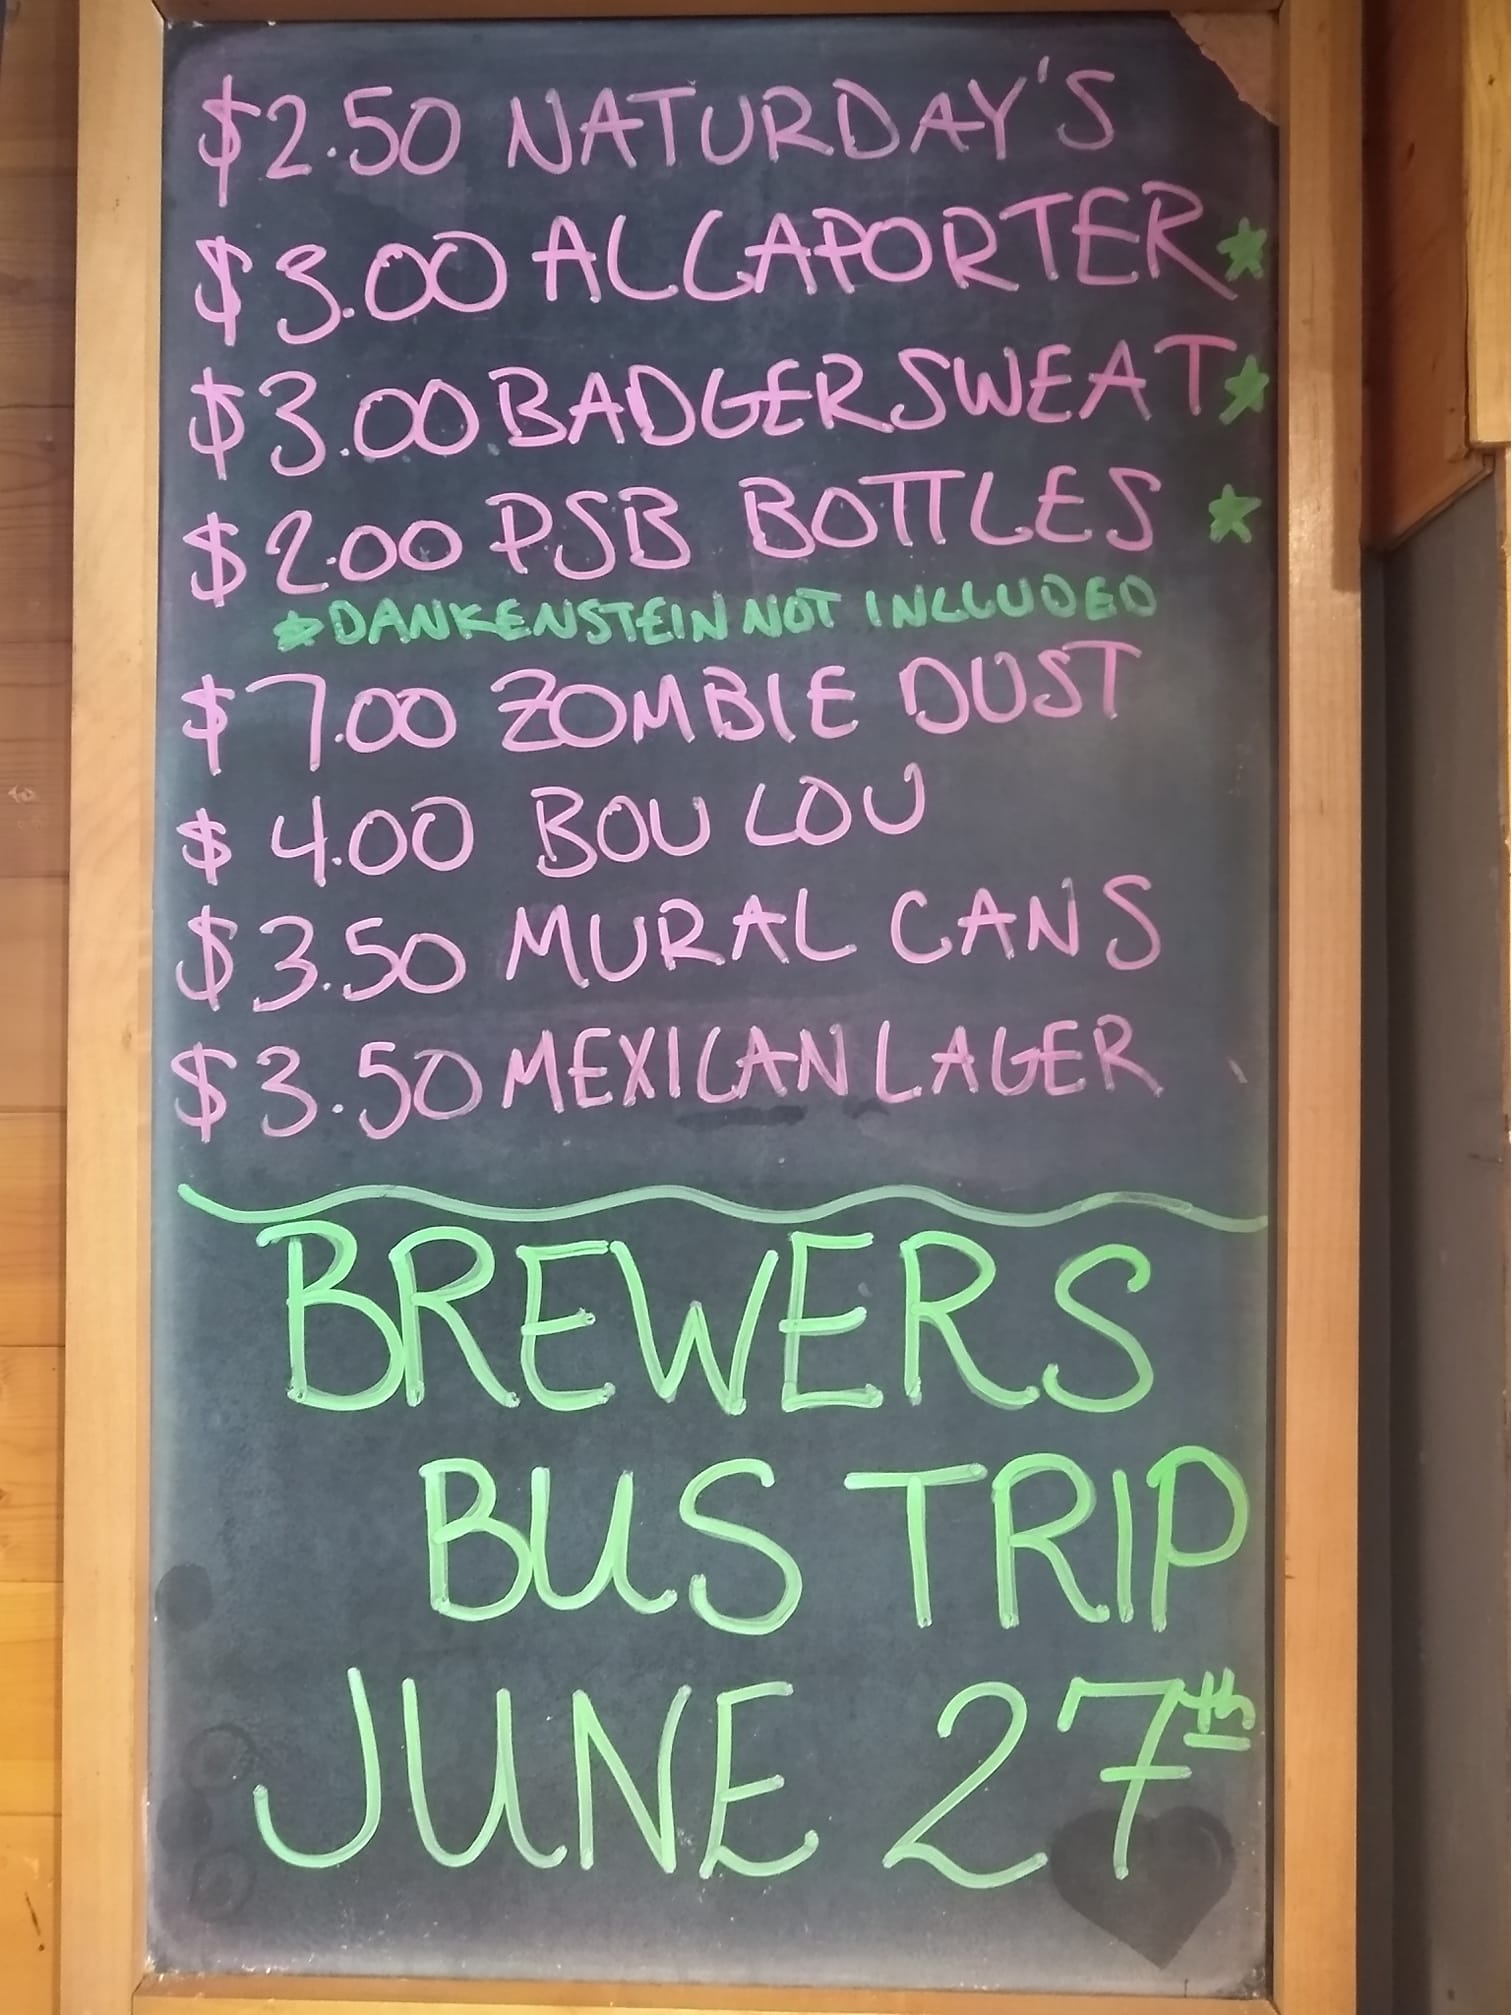 $2.50 NATURDAY'S
$3.00 ALCAPORTER★
$3.00 BADGER SWEAT★
$2.00 PSB BOTTLES ★
★DANKENSTEIN NOT INCLUDED
$7.00 ZOMBIE DUST
$4.00 BOU LOU
$3.50 MURAL CANS
$3.50 MEXICAN LAGER
BREWERS
BUS TRIP
JUNE 27th